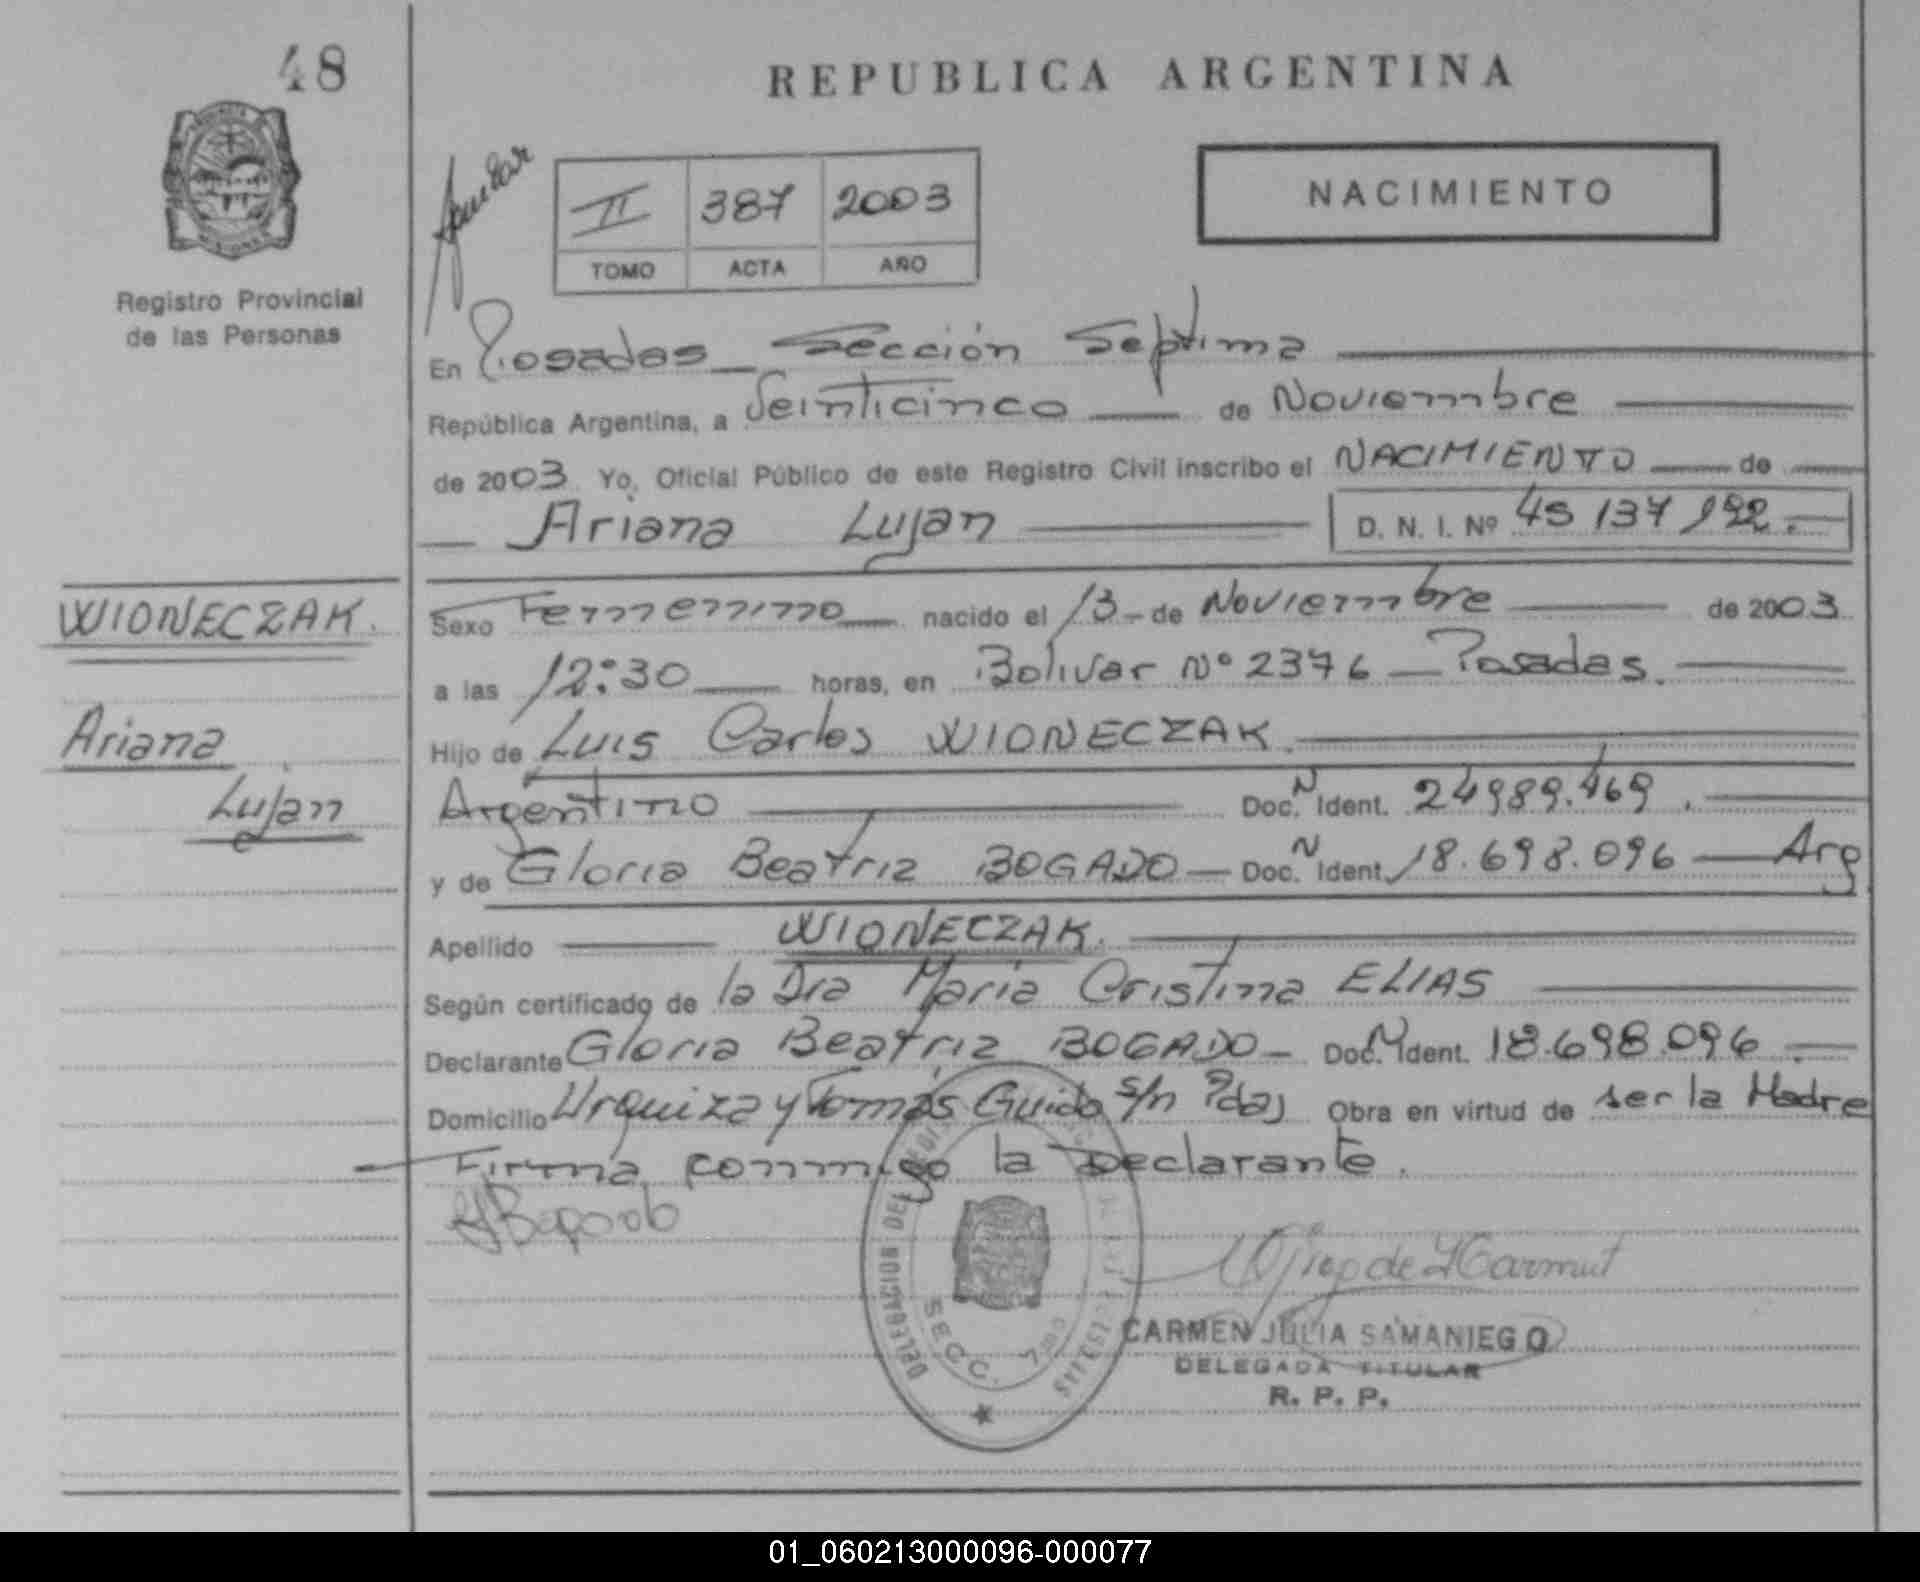 48
REPUBLICA ARGENTINA
II 387 2003
TOMO ACTA AÑO
NACIMIENTO
Registro Provincial
de las Personas
En Posadas Sección Septima
República Argentina, a Veinticinco de Noviembre
de 2003. Yo, Oficial Público de este Registro Civil inscribo el NACIMIENTO de
Ariana Lujan D. N. I. Nº 45 137 192.
WIONECZAK.
Ariana
Lujan
Sexo Femenino nacido el 13 de Noviembre de 2003
a las 12:30 horas, en Bolivar Nº 2376 - Posadas.
Hijo de Luis Carlos WIONECZAK.
Argentino Doc. N Ident. 24989.469.
y de Gloria Beatriz BOGADO - Doc. N Ident. 18.698.096 - Arg
Apellido WIONECZAK.
Según certificado de la Dra María Cristina ELIAS
Declarante Gloria Beatriz BOGADO - Doc. N Ident. 18.698.096.
Domicilio Urquiza y Tomás Guido s/n Pdas Obra en virtud de ser la Madre
Firma conmigo la Declarante.
DELEGACION DEL
SECC. 7
CARMEN JULIA SAMANIEGO
DELEGADA TITULAR
R. P. P.
01_060213000096-000077